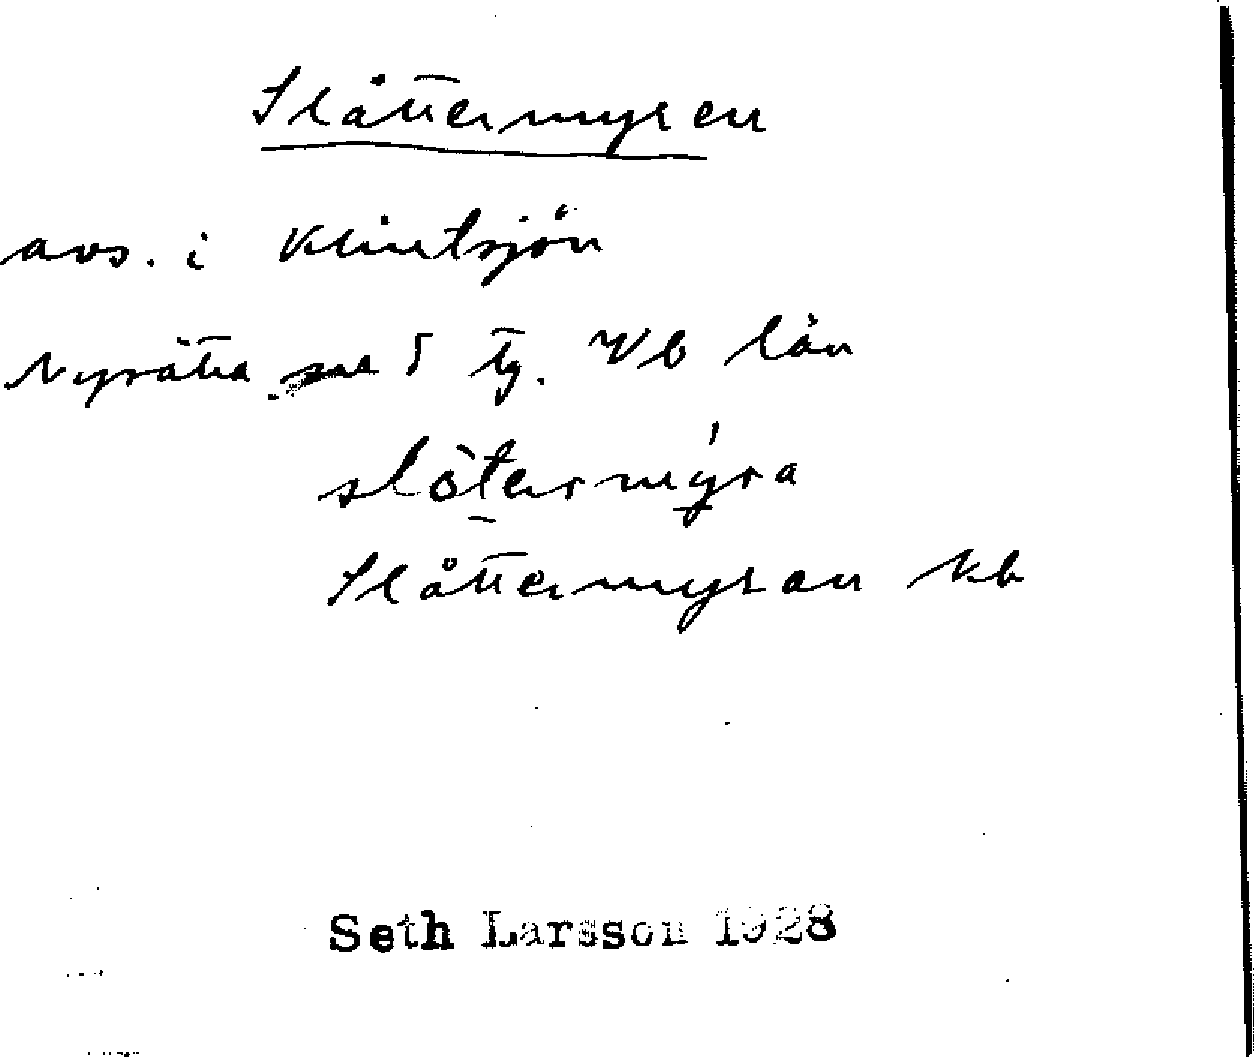 Slåttermyren
avs. i Klintsjön
Nysätra sn 5 tg. Vb län
slòtermýra
Slåttermyran kb
Seth Larsson 1928